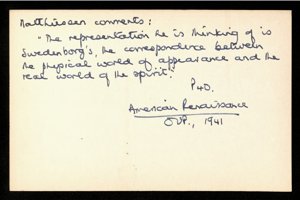 Matthiessen comments:
"The representation he is thinking of is
Swedenborg's, the correspondence between
the physical world of appearance and the
real world of the spirit."
P40.
American Renaissance
OUP., 1941